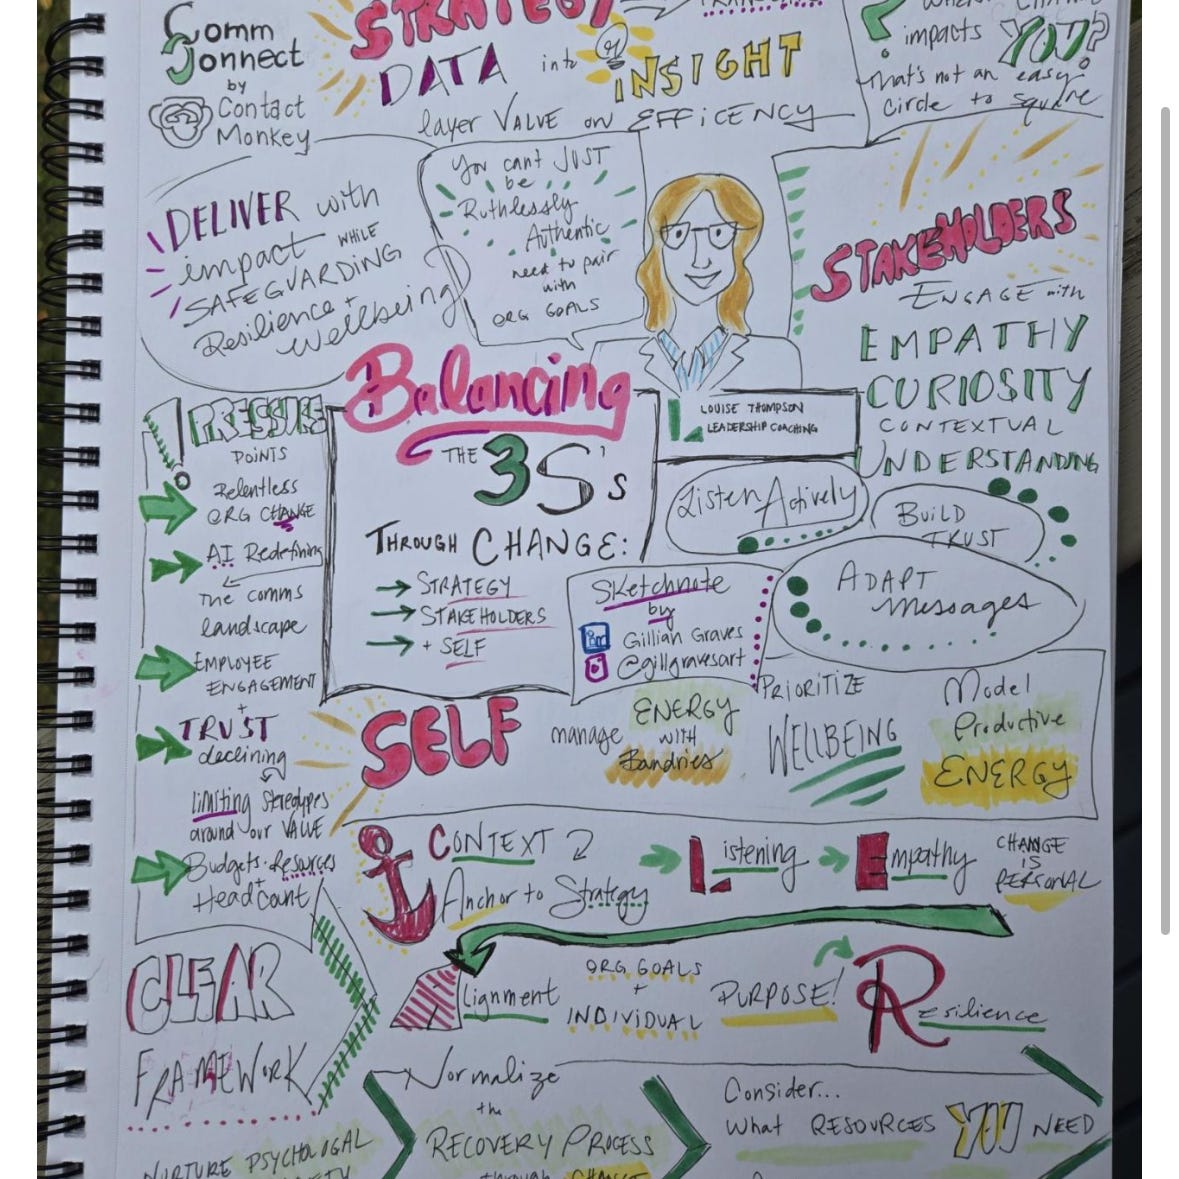 Comm
Connect
by
Contact
Monkey
STRATEGY
DATA into INSIGHT
layer VALUE on EFFICENCY
impacts YOU?
that's not an easy
circle to square
DELIVER with
impact WHILE
SAFEGUARDING
Resilience +
wellbeing
You can't JUST
be
Ruthlessly
Authentic
need to pair
with
ORG GOALS
STAKEHOLDERS
ENGAGE with
EMPATHY
CURIOSITY
CONTEXTUAL
UNDERSTANDING
LOUISE THOMPSON
LEADERSHIP COACHING
Listen Actively
BUILD
TRUST
ADAPT
messages
Balancing
THE 3 S's
THROUGH CHANGE:
→ STRATEGY
→ STAKEHOLDERS
→ + SELF
Sketchnote
by
in Gillian Graves
@gillgravesart
! PRESSURE
POINTS
Relentless
ORG CHANGE
AI Redefining
the comms
landscape
EMPLOYEE
ENGAGEMENT
+
TRUST
declining
limiting stereotypes
around our VALUE
Budgets · Resources
+
Head Count
SELF
manage ENERGY
WITH
Bandries
PRIORITIZE
WELLBEING
Model
Productive
ENERGY
CLEAR
FRAMEWORK
CONTEXT
Anchor to Strategy
Listening
Empathy
CHANGE
IS
PERSONAL
Alignment
ORG GOALS
+
INDIVIDUAL
PURPOSE!
Resilience
NURTURE PSYCHOLOGAL
Normalize
the
RECOVERY PROCESS
through CHANGE
Consider...
What RESOURCES YOU NEED